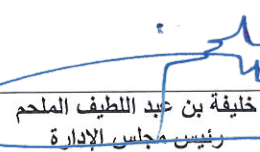 خليفة بن عبد اللطيف الملحم
رئيس مجلس الإدارة